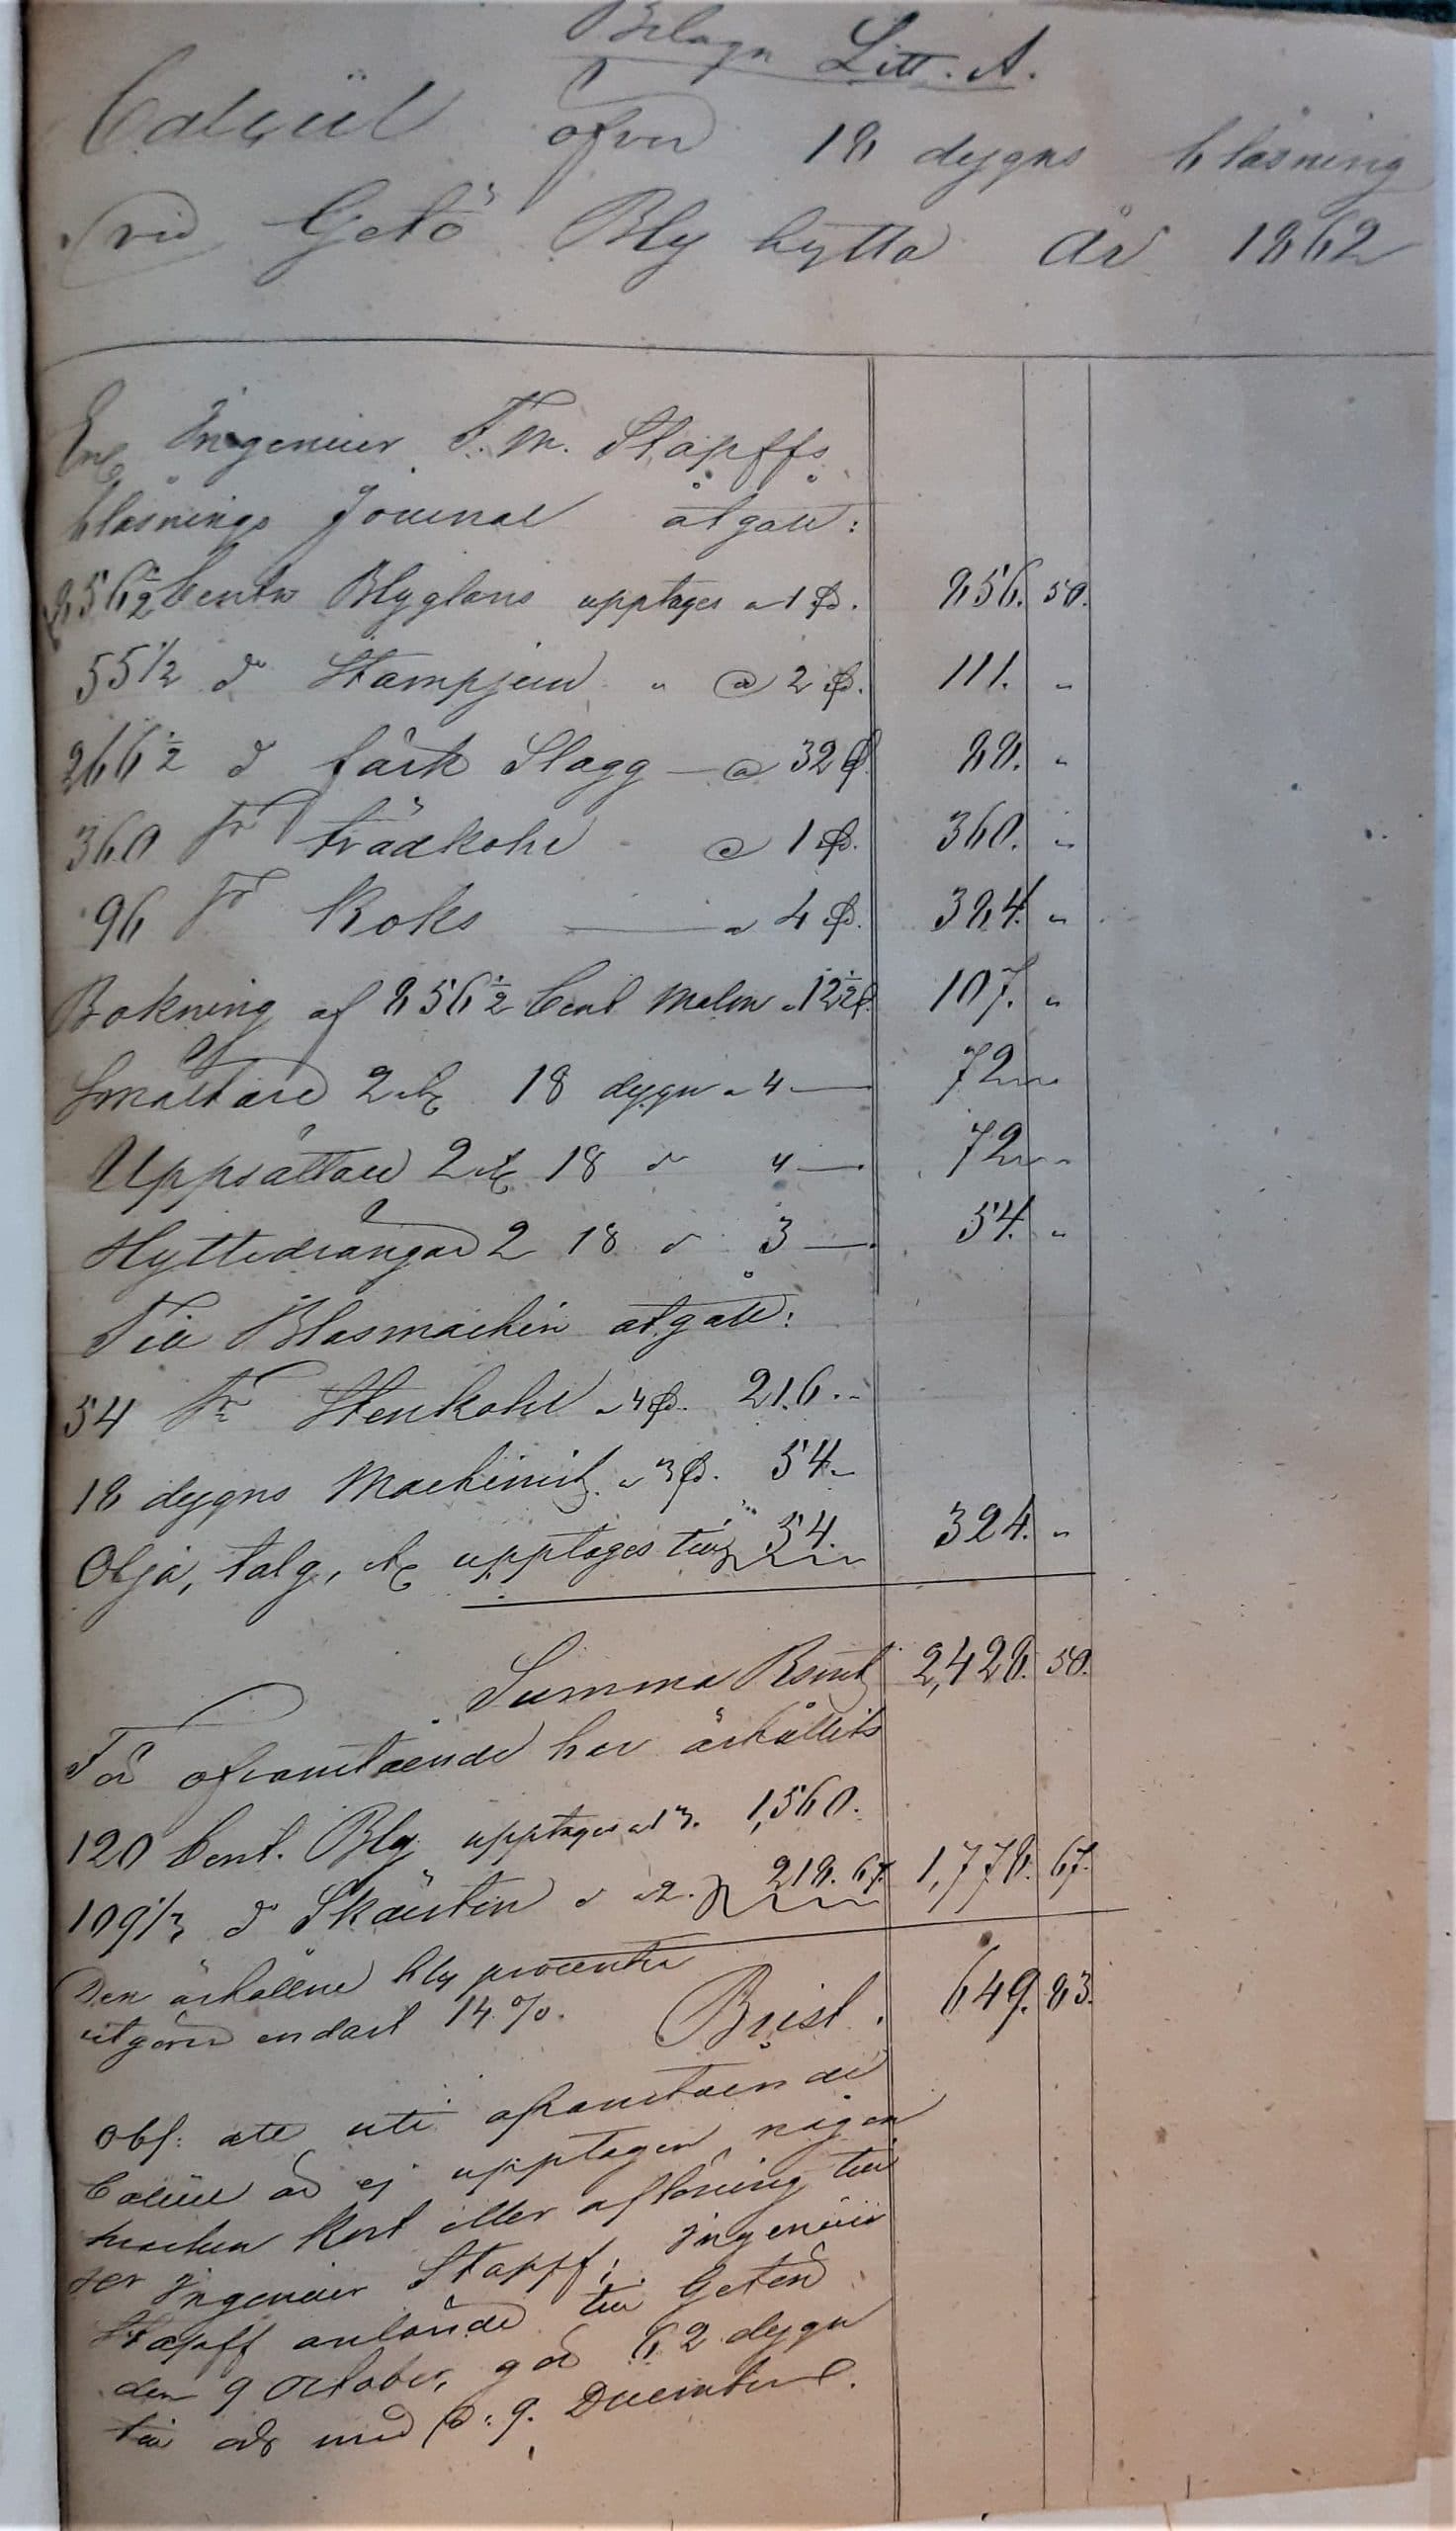 Bilaga Litt. A.
Calcül öfver 18 dygns blåsning
vid Getö Bly hytta År 1862
Enl Ingenieur F. M. Stapffs
blåsnings Journal åtgått:
856 1/2 Centn Blyglans upptages a 1 Rd. 856. 50.
55 1/2 do Stampjern " @ 2 Rd. 111. "
266 1/2 do färsk Slagg — @ 32 88. "
360 Tr trädkohl @ 1 Rd. 360. "
96 Tr Koks — a 4 Rd. 384. "
Bokning af 856 1/2 Cent Malm a 12 1/2 107. "
Smältare 2 st 18 dygn a 4 — 72 "
Uppsättare 2 st 18 do 4 — 72 "
Hyttedrängar 2 18 do 3 — 54. "
Till Blåsmachin åtgått:
54 Tr Stenkohl a 4 Rd. 216. "
18 dygns Machinist a 3 Rd. 54. "
Olja, talg, etc upptages till 54. 324. "
Summa Rmt 2,428. 50.
För ofvanstående har erhållits
120 Cent. Bly upptages a 13. 1,560.
109 1/3 do Skärsten do a 2. 218. 67. 1,778. 67.
Den erhållne bly procenten
utgöres endast 14 %. Brist. 649. 83.
Obs: att uti ofvanstående
Calcül är ej upptagen någon
hvarken Kost eller aflöning till
Herr Ingeniör Stapff; Ingeniör
Stapff anlände till Getön
den 9 October, gör 62 dygn
till och med d: 9. December.